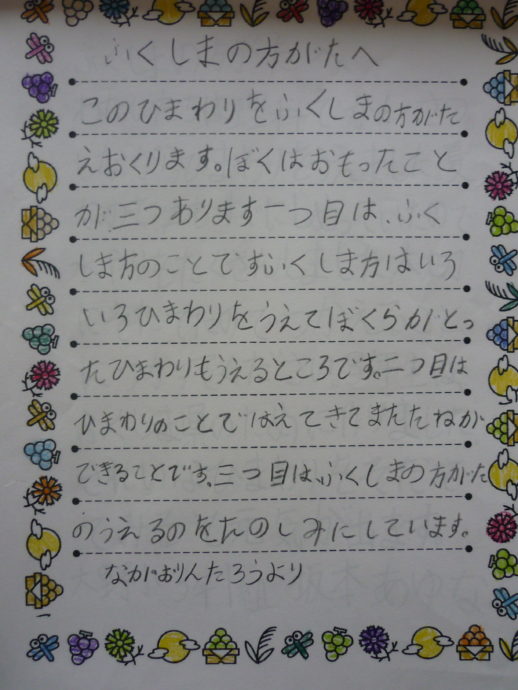 ふくしまの方がたへ
このひまわりをふくしまの方がた
えおくります。ぼくはおもったこと
が三つあります一つ目は、ふく
しま方のことですふくしま方はいろ
いろひまわりをうえてぼくらがとっ
たひまわりもうえるところです。二つ目は
ひまわりのことではえてきてまたたねが
できることです。三つ目は、ふくしまの方がた
のうえるのをたのしみにしています。
なかおりんたろうより